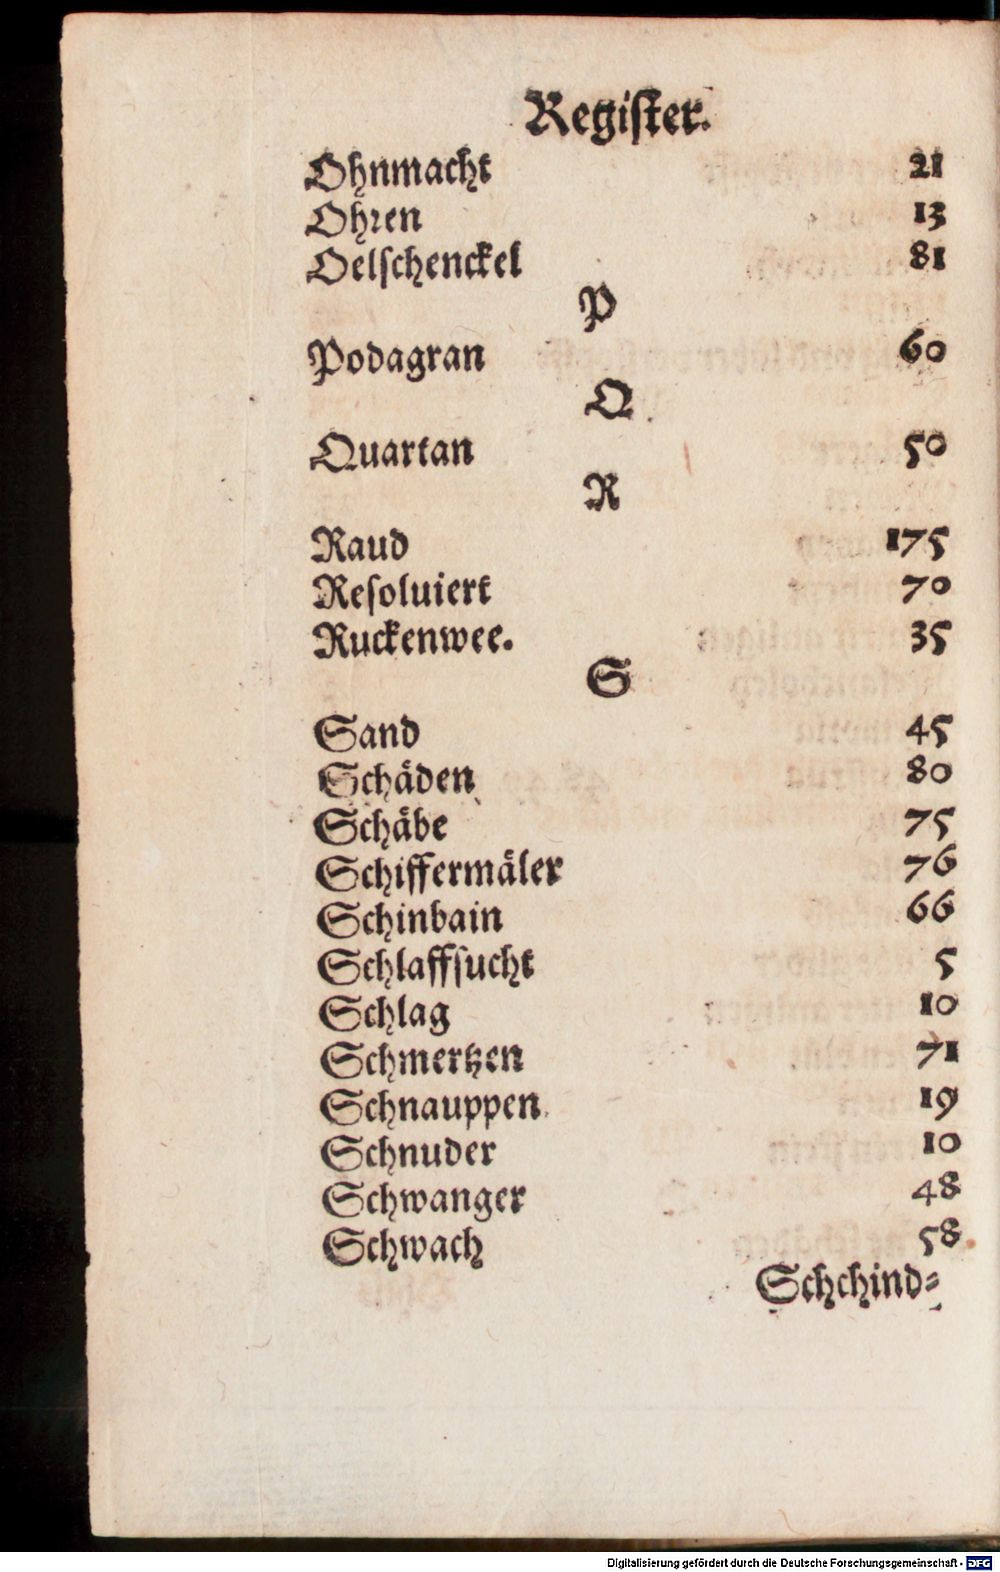 Regiſter.
Ohnmacht 21
Ohren 13
Oelſchenckel 81
P
Podagran 60
Q
Quartan 50
R
Raud 175
Reſoluiert 70
Ruckenwee. 35
S
Sand 45
Schäden 80
Schäbe 75
Schiffermäler 76
Schinbain 66
Schlaffſucht 5
Schlag 10
Schmertzen 71
Schnauppen 19
Schnuder 10
Schwanger 48
Schwach 58
Schchind⸗
Digitalisierung gefördert durch die Deutsche Forschungsgemeinschaft - DFG